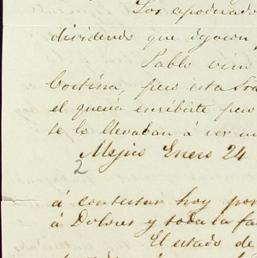 Los apoderado
dividendo que dejaron
Pablo vin
Cortina, pero esta
el queria escribirte pero
se lo llevaban a ver
Mejico Enero 24
2
á contestar hoy por
á Dolores y toda la fa
El estado de